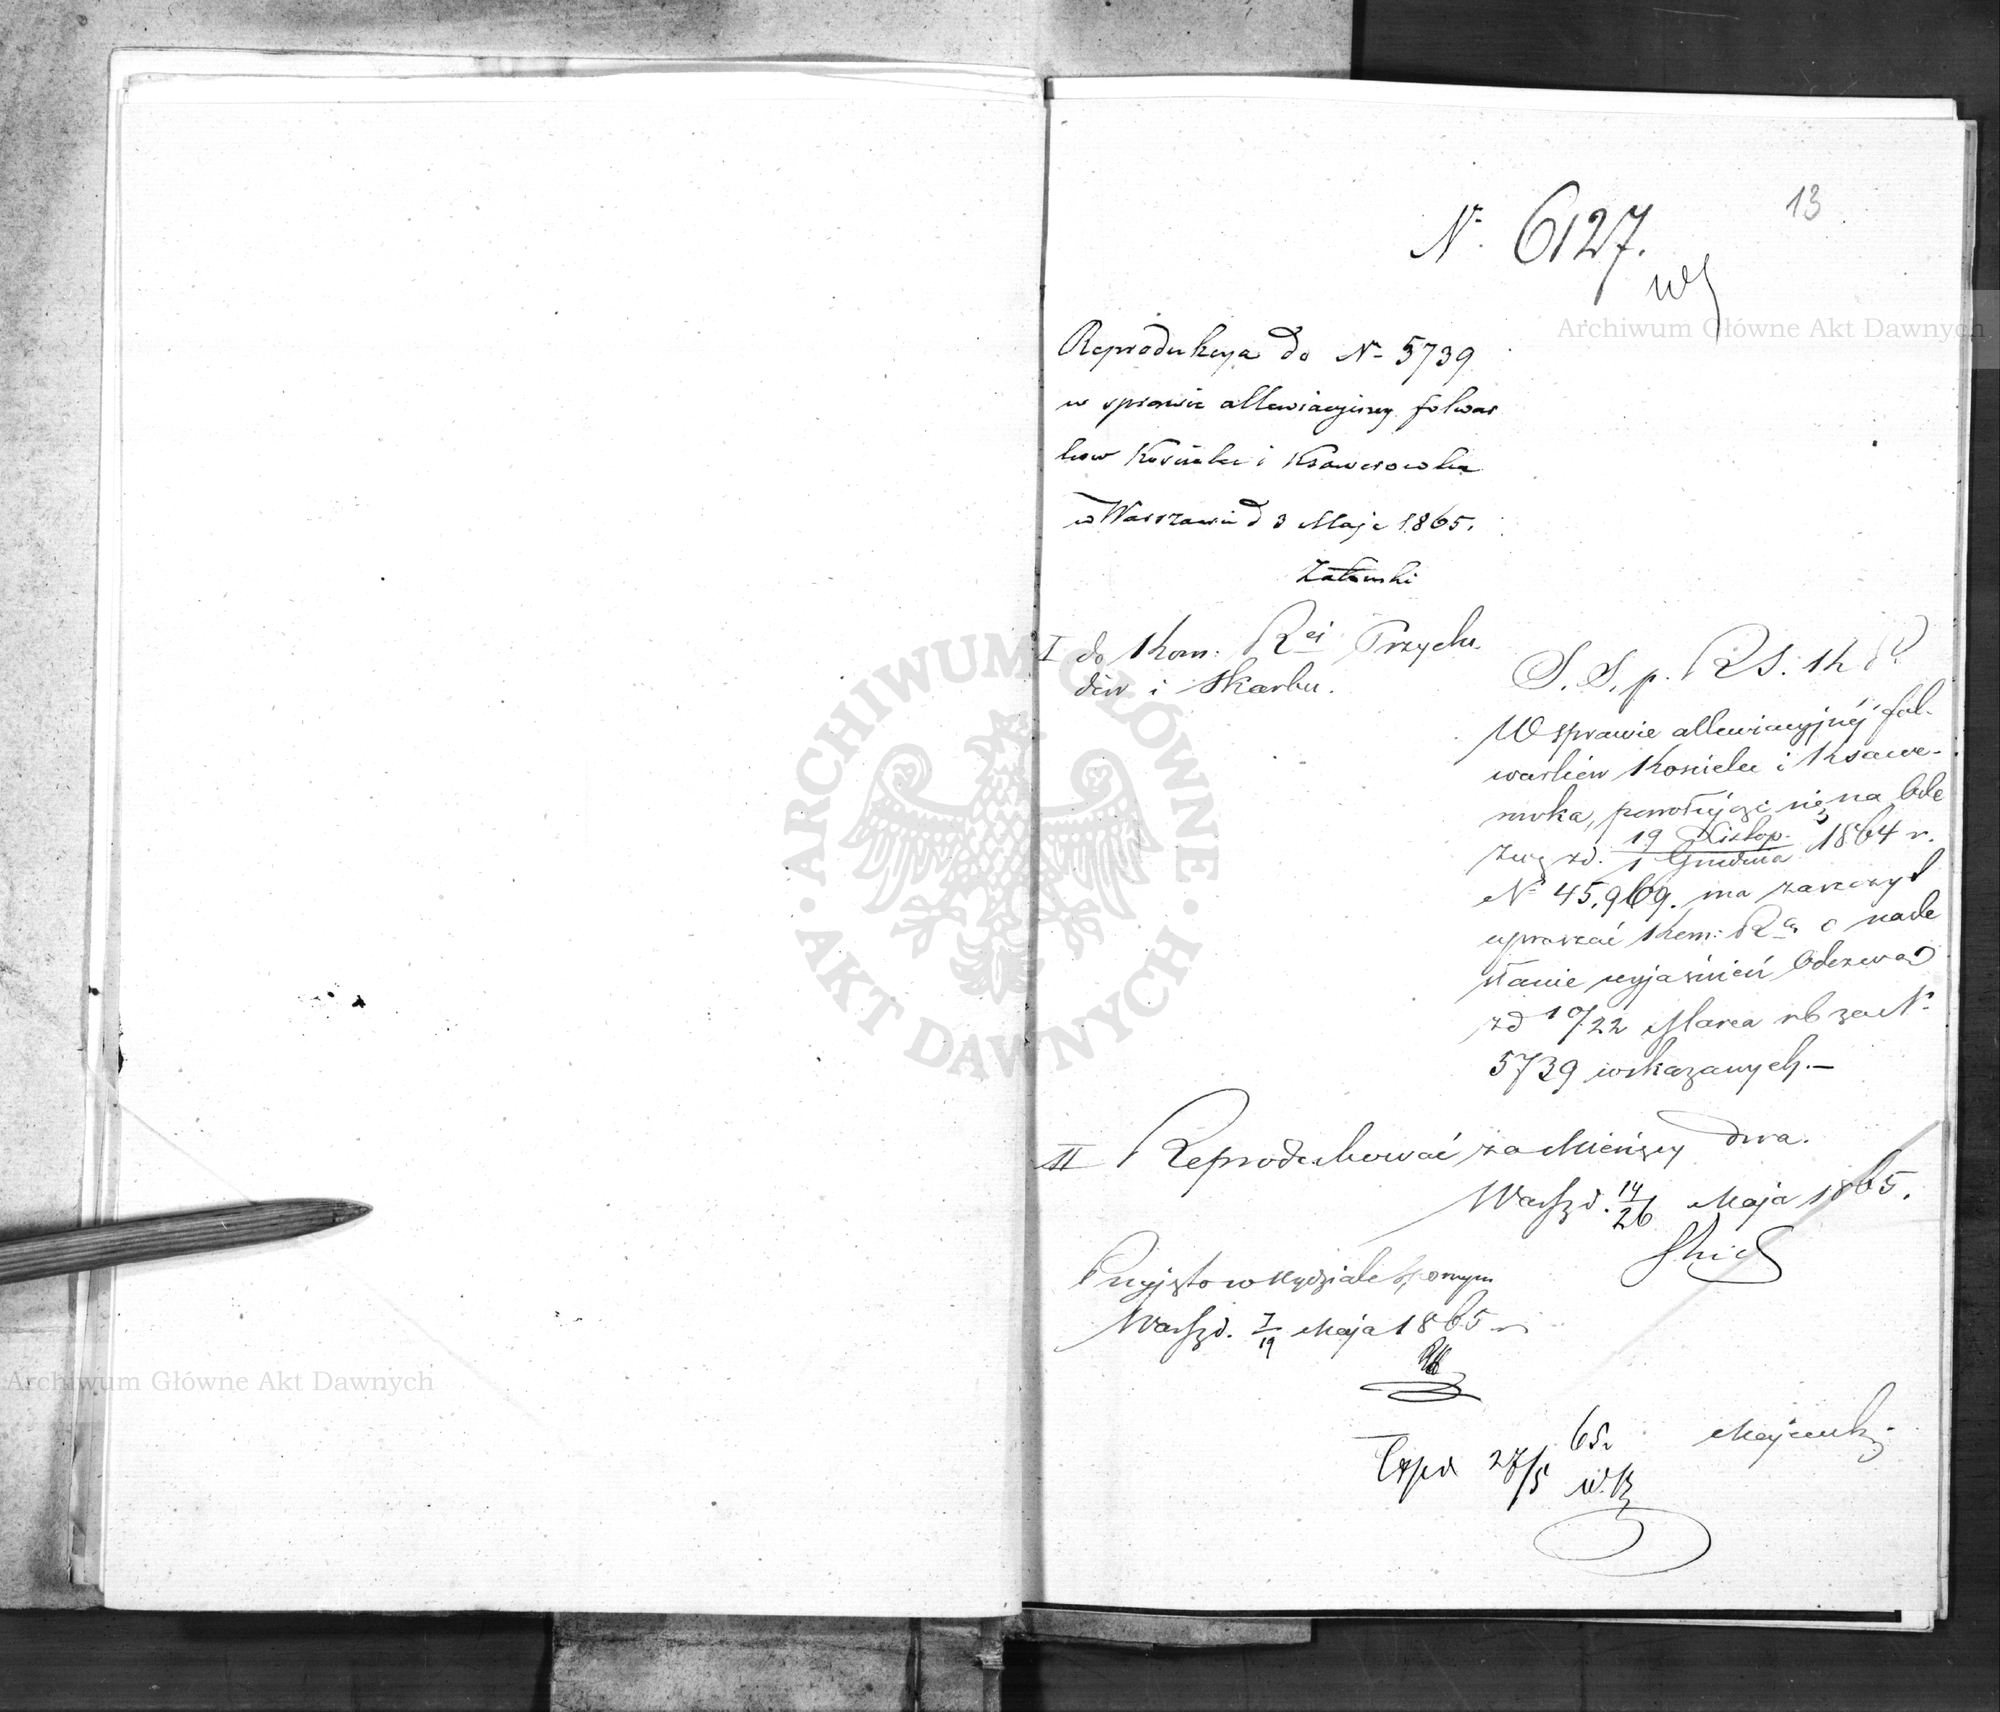 13
N. 6127.
Reprodukcya do N- 5739
w sprawie allewiacyjney folwar
kow Kościelec i Ksawerowka
w Warszawie d 3 Maja 1865.
Załuski
I do Kom: Rei Przycho
dów i Skarbu.
S. S. p. R S. K
W sprawie allewiacyjnéj fol-
warków Kościelec i Ksawe-
rowka, powołując się na Ode
zwę z d. 19 Listop. / 1 Grudnia 1864 r.
N- 45,969. ma zaszczyt
upraszać Kom: R o nade
słanie wyjaśnień Odezwą
z d 10/22 Marca rb za N-
5739 wskazanych.—
II Reprodukować za Miesięcy dwa.
Warsz d. 14/26 Maja 1865.
Przyjęto w Wydziale Spornym
Warsz d. 7/19 Maja 1865 r
Exped 27/5 65.
Archiwum Główne Akt Dawnych
Archiwum Główne Akt Dawnych
ARCHIWUM GŁÓWNE · AKT DAWNYCH ·